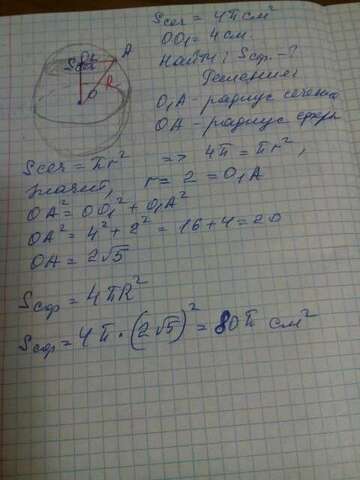 Sсеч = 4π см²
OO₁ = 4 см.
Найти: Sсф - ?
Решение:
O₁A - радиус сечения
OA - радиус сферы
A
R
O
Sсеч = πr² => 4π = πr²,
значит, r = 2 = O₁A
OA² = OO₁² + O₁A²
OA² = 4² + 2² = 16 + 4 = 20
OA = 2√5
Sсф = 4πR²
Sсф = 4π · (2√5)² = 80π см²